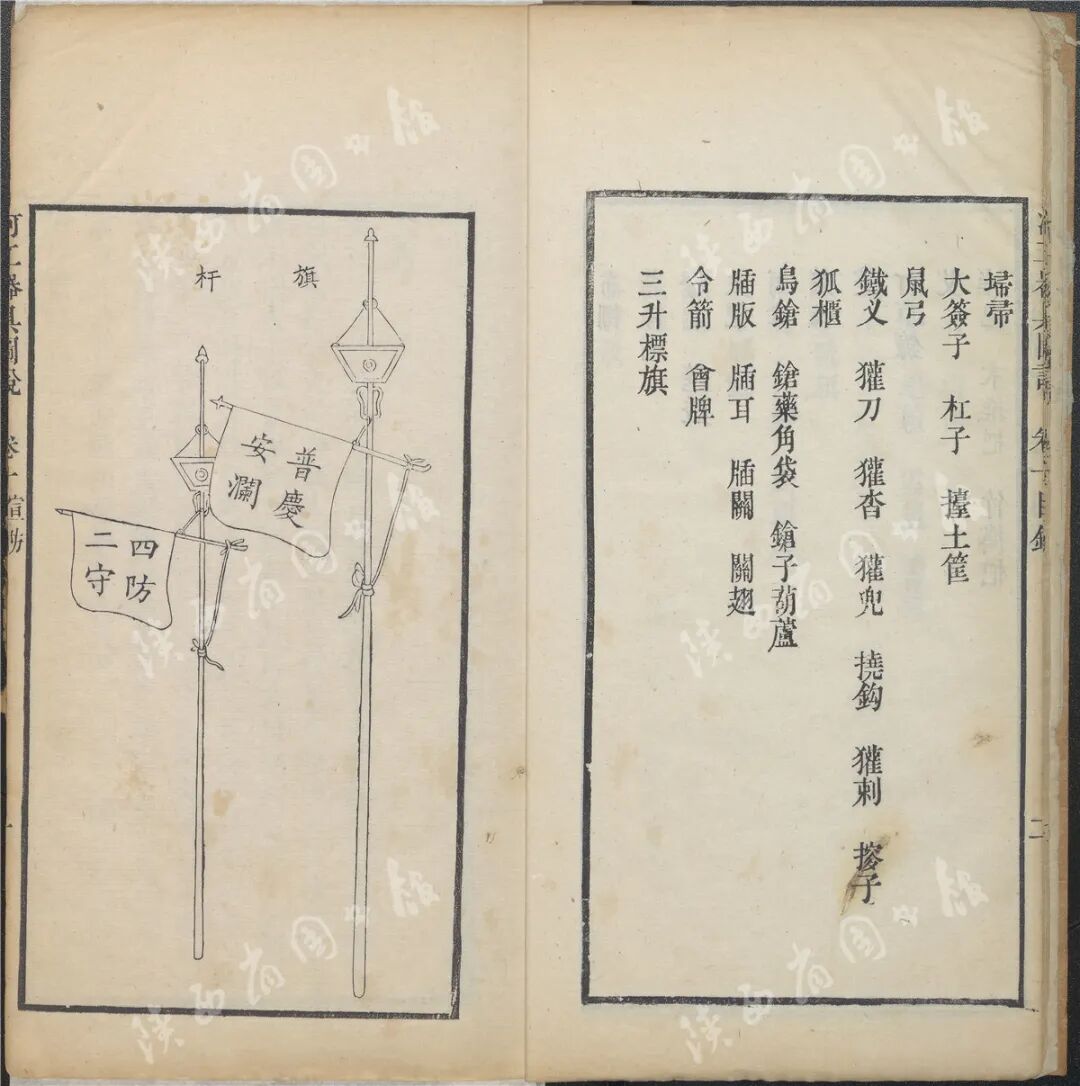 埽帚
大簽子 杠子 擡土筐
鼠弓
鐵义 獾刀 獾沓 獾兜 撓鈎 獾刺 子
狐櫃
鳥鎗 鎗藥角袋 鎗子葫蘆
牐版 牐耳 牐關 關翅
令箭 會牌
三升標旗
旗杆
普慶
安瀾
四防
二守
河工器具圖說 卷一 宣防 一
陕西省图书馆